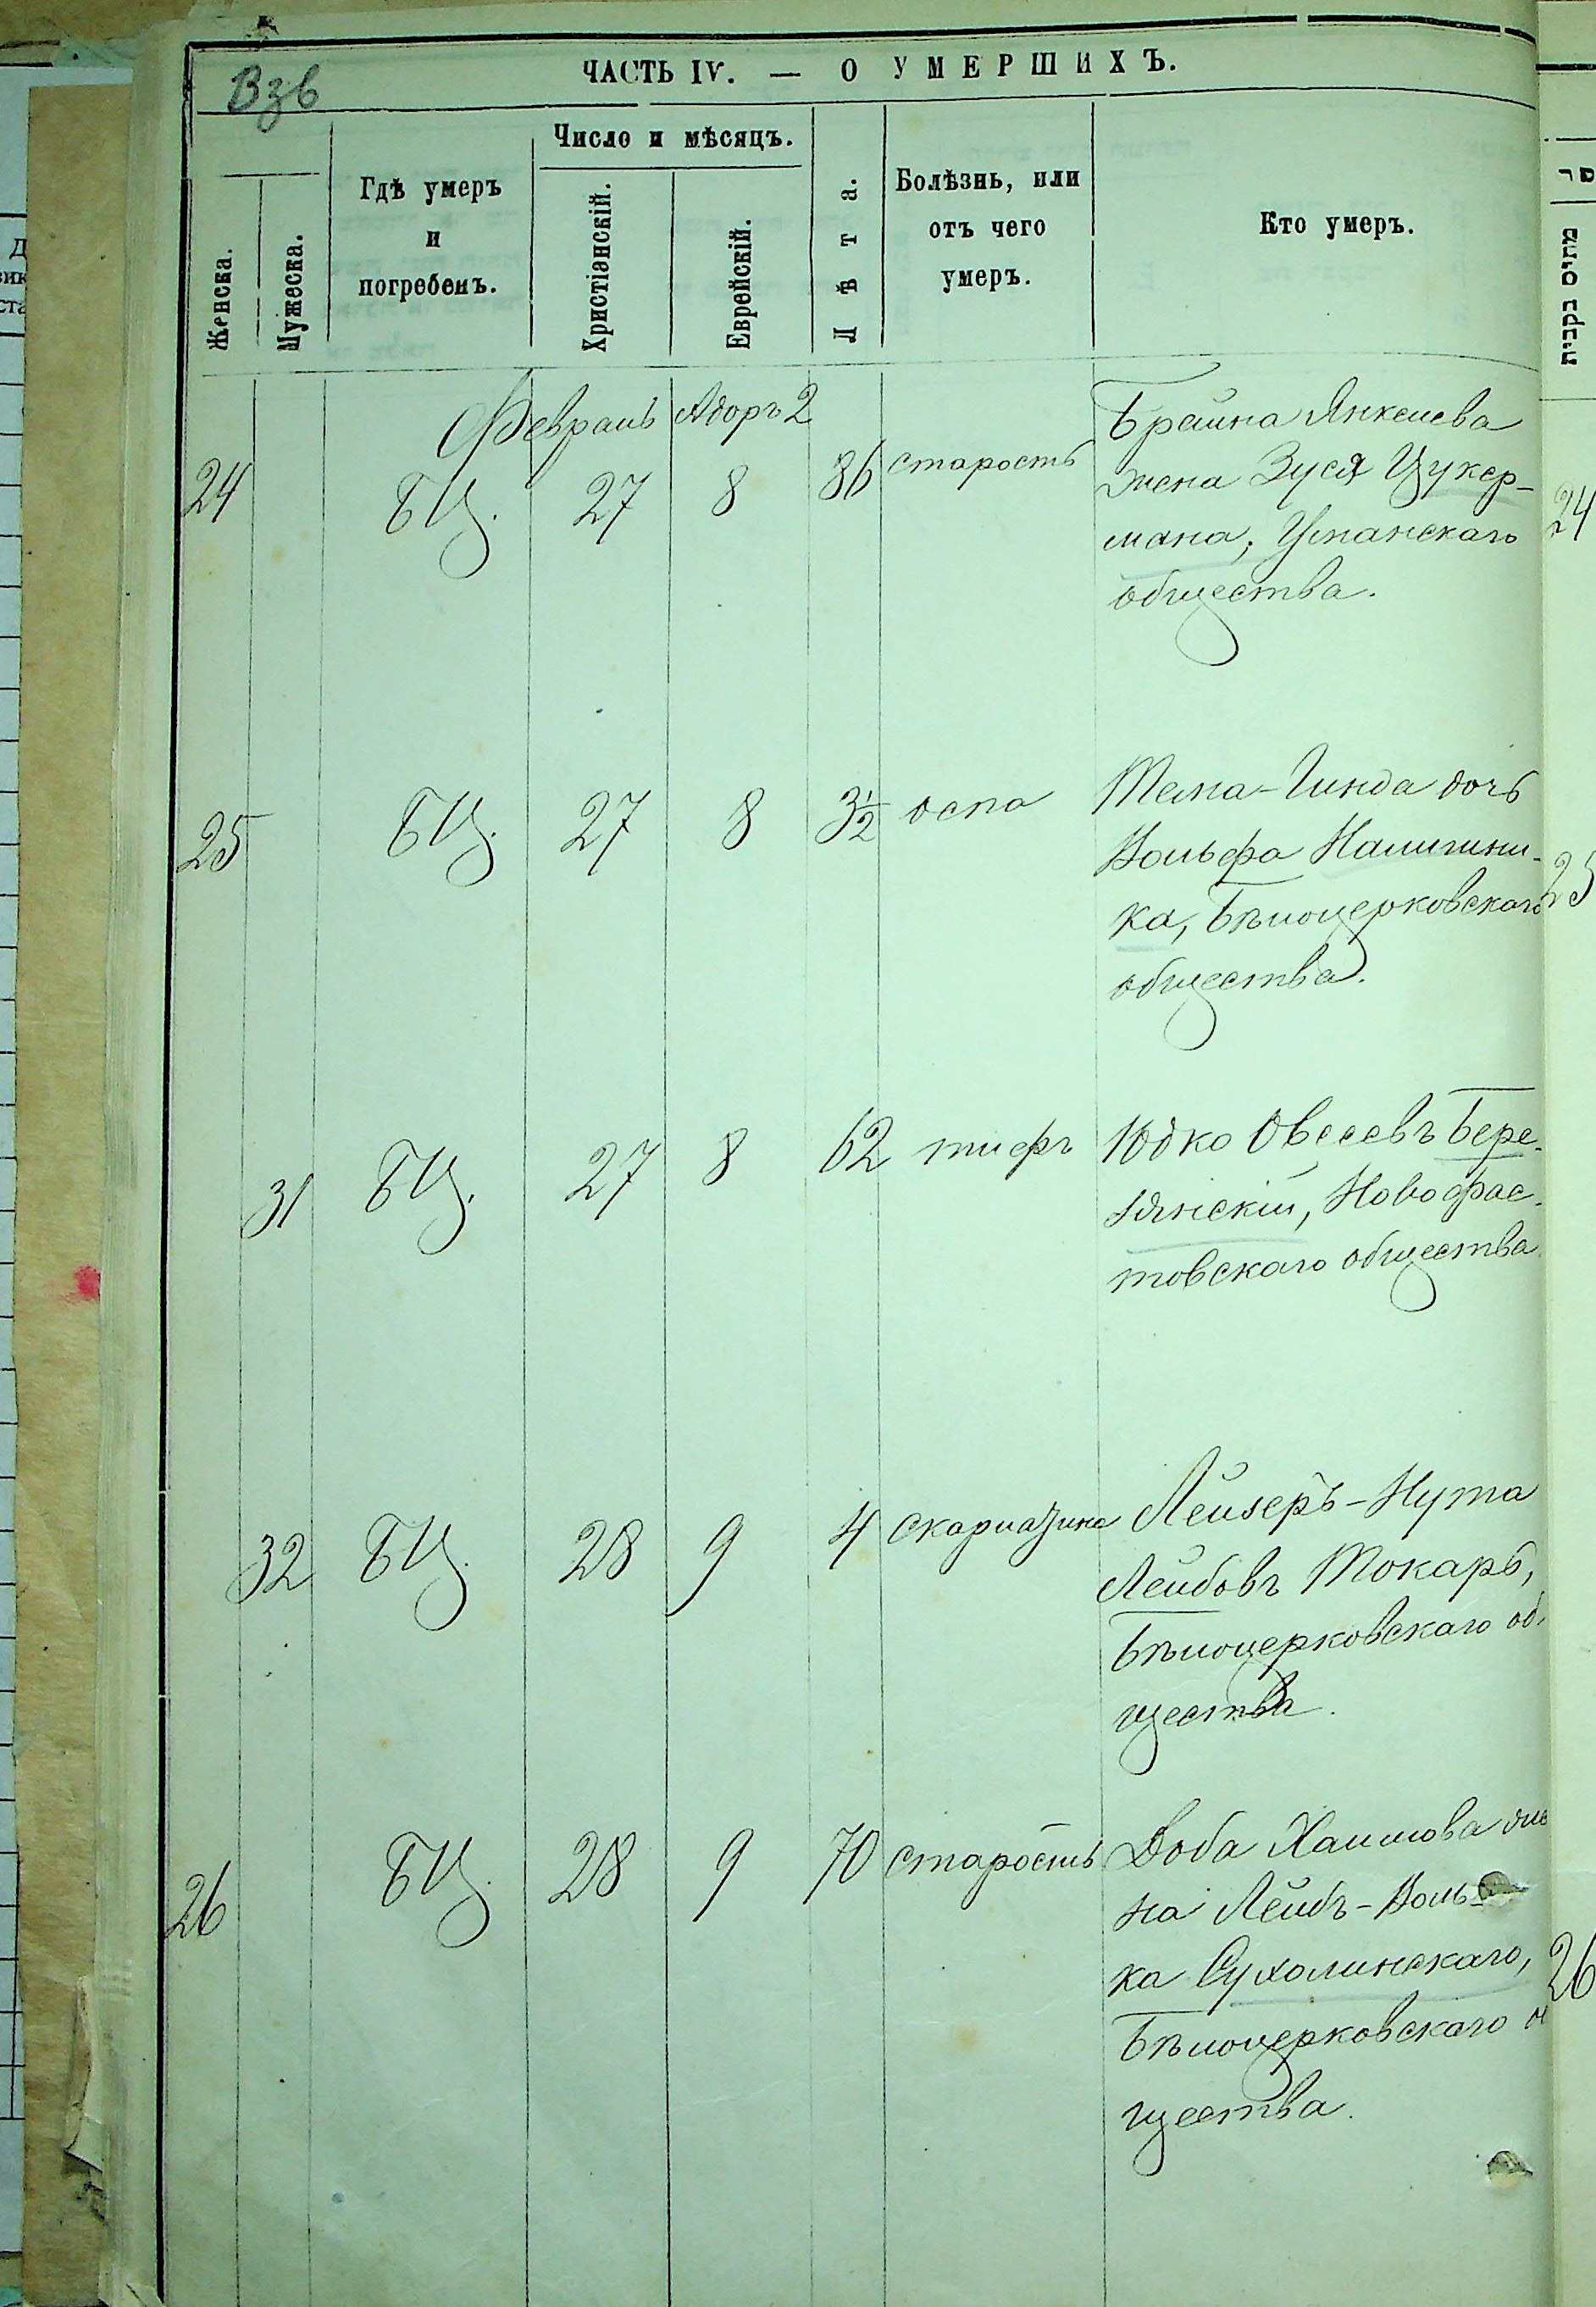 ЧАСТЬ IV. — О УМЕРШИХЪ.
Взв
Женска.
Мужеска.
Гдѣ умеръ
и
погребенъ.
Число и мѣсяцъ.
Христіанскій.
Еврейскій.
Лѣта.
Болѣзнь, или
отъ чего
умеръ.
Кто умеръ.
Февраль Адоръ 2
24 БЦ. 27 8 86 старость
Брайна Янкелева
жена Зуся Цукер-
мана, Уманскаго
общества.
24
25 БЦ. 27 8 3½ оспа
Тема-Гинда дочь
Вольфа
ка, Бѣлоцерковскаго
общества.
25
31 БЦ. 27 8 62 тифъ
Юдко Овсеевъ Бере-
зянскій, Новофас-
товскаго общества
32 БЦ. 28 9 4 скарлатина
Лейзеръ-Нута
Лейбовъ Токарь,
Бѣлоцерковскаго об-
щества.
26 БЦ. 28 9 70 старость
Доба Хаимова же
на Лейбъ-Воль
ка Сухолинскаго,
Бѣлоцерковскаго о
щества.
26